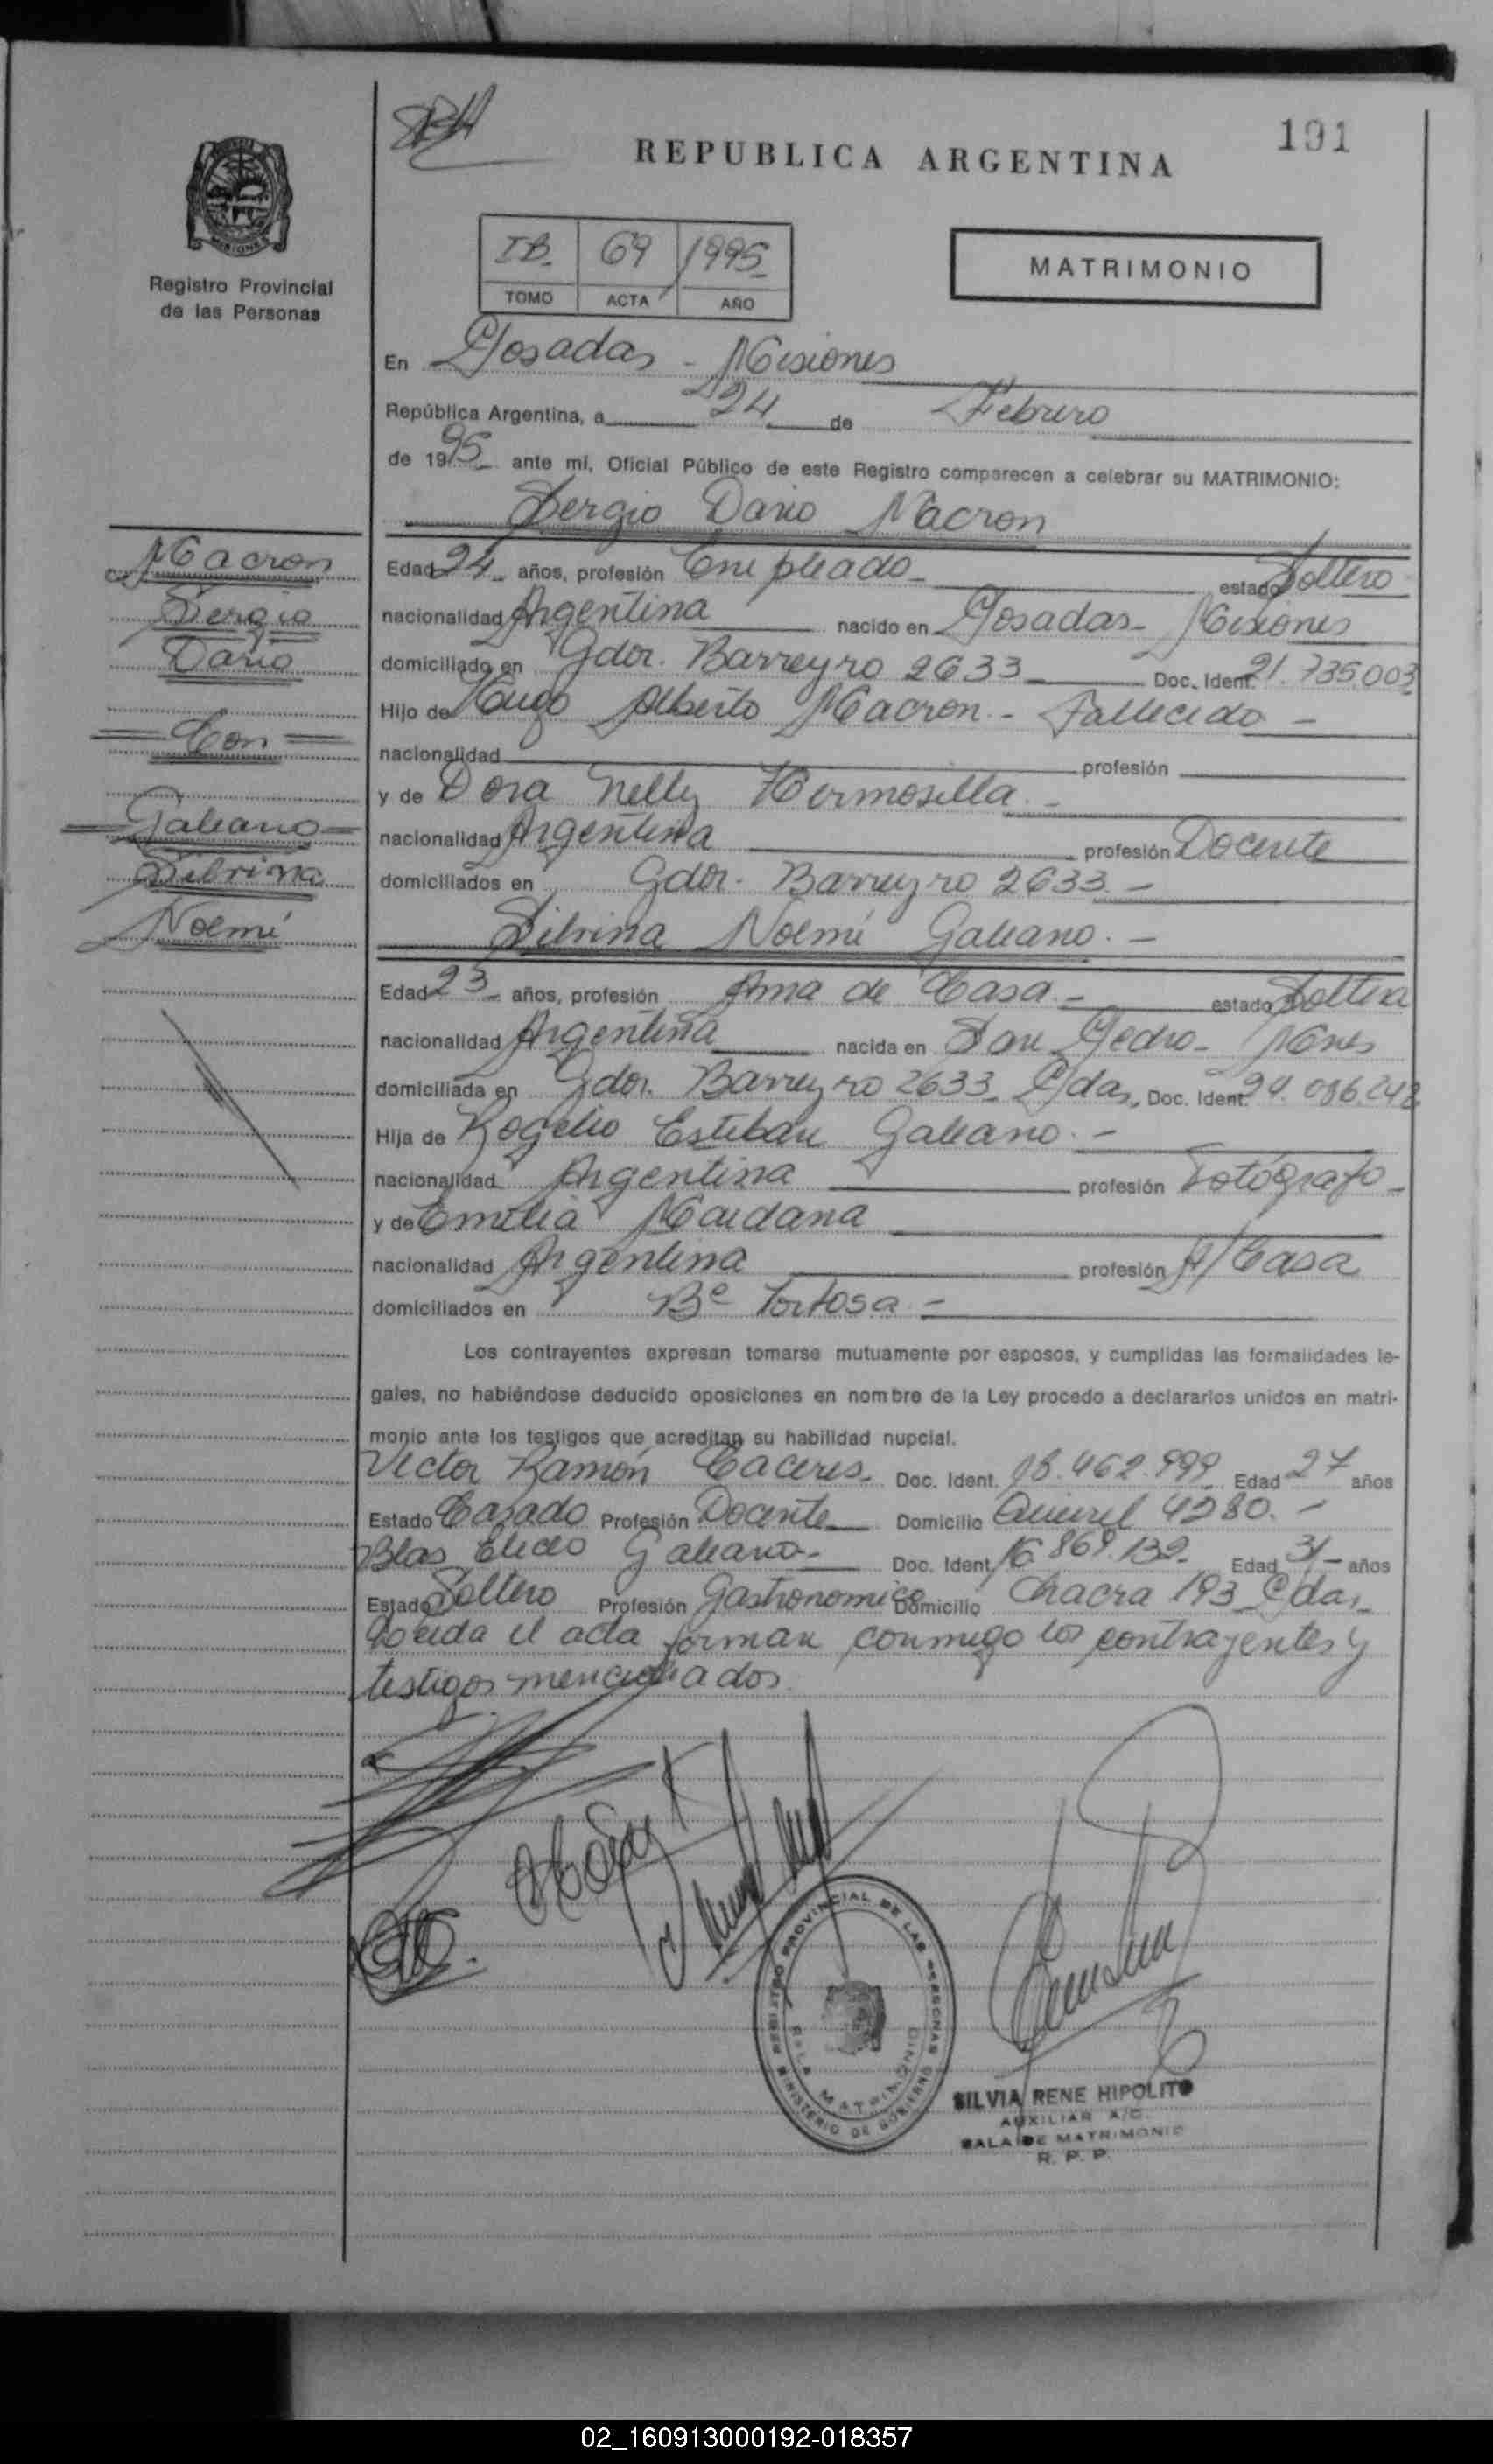 191
REPUBLICA ARGENTINA
MISIONES
Registro Provincial
de las Personas
IB. 69 1995
TOMO ACTA AÑO
MATRIMONIO
En Posadas - Misiones
República Argentina, a 24 de Febrero
de 1995 ante mi, Oficial Público de este Registro comparecen a celebrar su MATRIMONIO:
Sergio Dario Macron
Macron
Sergio
Dario
Con
Galeano
Silvina
Noemí
Edad 24 años, profesión Empleado estado Soltero
nacionalidad Argentina nacido en Posadas - Misiones
domiciliado en Gdor. Barreyro 2633 Doc. Ident. 21.735.003
Hijo de Hugo Alberto Macron - Fallecido -
nacionalidad profesión
y de Dora Nelly Hermosilla. -
nacionalidad Argentina profesión Docente
domiciliados en Gdor. Barreyro 2633. -
Silvina Noemí Galeano. -
Edad 23 años, profesión Ama de Casa. - estado Soltera
nacionalidad Argentina nacida en San Pedro - Mnes
domiciliada en Gdor. Barreyro 2633 - Pdas, Doc. Ident. 24.086.248
Hija de Rogelio Esteban Galeano. -
nacionalidad Argentina profesión Fotógrafo -
y de Emilia Maidana
nacionalidad Argentina profesión A/Casa
domiciliados en Bº Tortosa. -
Los contrayentes expresan tomarse mutuamente por esposos, y cumplidas las formalidades le-
gales, no habiéndose deducido oposiciones en nombre de la Ley procedo a declararlos unidos en matri-
monio ante los testigos que acreditan su habilidad nupcial.
Victor Ramón Caceres - Doc. Ident. 18.462.999 Edad 27 años
Estado Casado Profesión Docente Domicilio 4280. -
Blas Galeano - Doc. Ident. 16.869.132 - Edad 31 - años
Estado Soltero Profesión Gastronomico Domicilio Chacra 193 Pdas,
Leida el acta firman conmigo los contrayentes y
testigos mencionados.
REGISTRO PROVINCIAL DE LAS PERSONAS
SALA MATRIMONIO
MINISTERIO DE GOBIERNO
SILVIA RENE HIPOLITO
AUXILIAR A/C.
SALA DE MATRIMONIO
R. P. P.
02_160913000192-018357